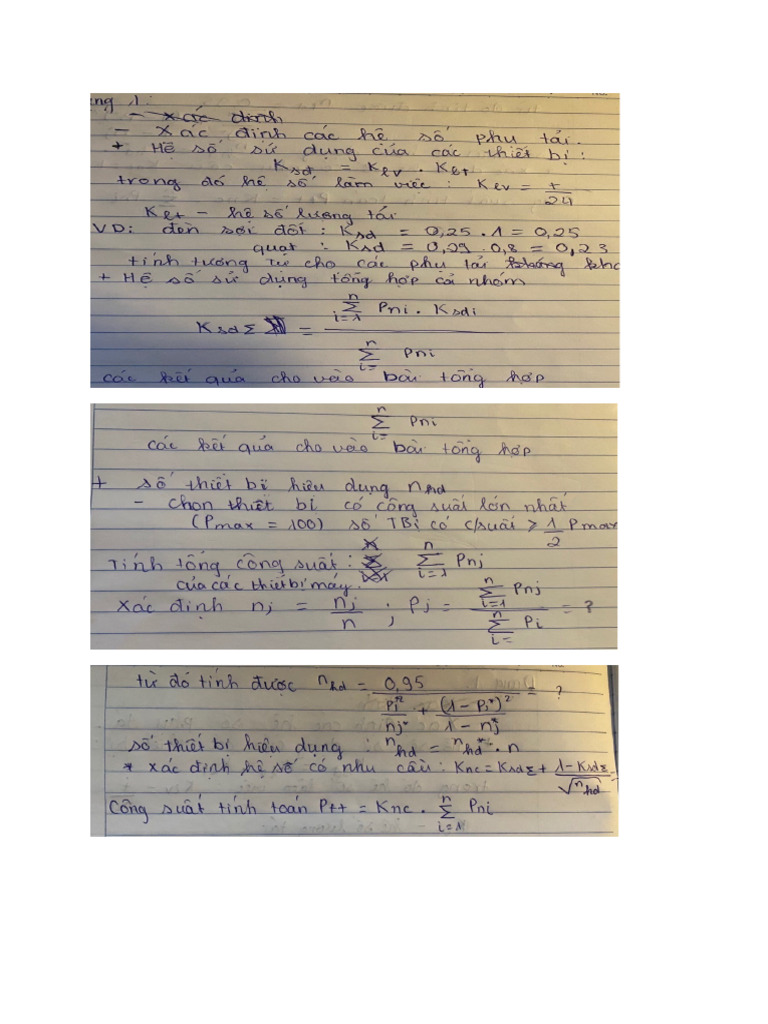 ng 1:
- xác định
- Xác định các hệ số phụ tải.
+ Hệ số sử dụng của các thiết bị:
Ksd = Klv . Klt
trong đó hệ số làm việc : Klv = t/24
Klt - hệ số lượng tải
VD: đèn sợi đốt : Ksd = 0,25 . 1 = 0,25
quạt : Ksd = 0,29 . 0,8 = 0,23
tính tương tự cho các phụ tải
+ Hệ số sử dụng tổng hợp cả nhóm
KsdΣ = n Σ i=1 Pni . Ksdi / n Σ i= Pni
các kết quả cho vào bài tổng hợp
n Σ i= Pni
các kết quả cho vào bài tổng hợp
+ số thiết bị hiệu dụng nhd
- chọn thiết bị có công suất lớn nhất
(Pmax = 100) số TBị có c/suất ≥ 1/2 Pmax
Tính tổng công suất : n Σ i=1 Pnj
của các thiết bị máy.
Xác định nj = nj/n ; Pj = n Σ i=1 Pnj / n Σ i= Pi = ?
từ đó tính được nhd = 0,95 / Pi*²/nj* + (1-Pi*)²/1-nj* = ?
số thiết bị hiệu dụng : nhd = nhd* . n
* xác định hệ số có nhu cầu : Knc = KsdΣ + 1-KsdΣ/√nhd
Công suất tính toán Ptt = Knc . n Σ i=1 Pni